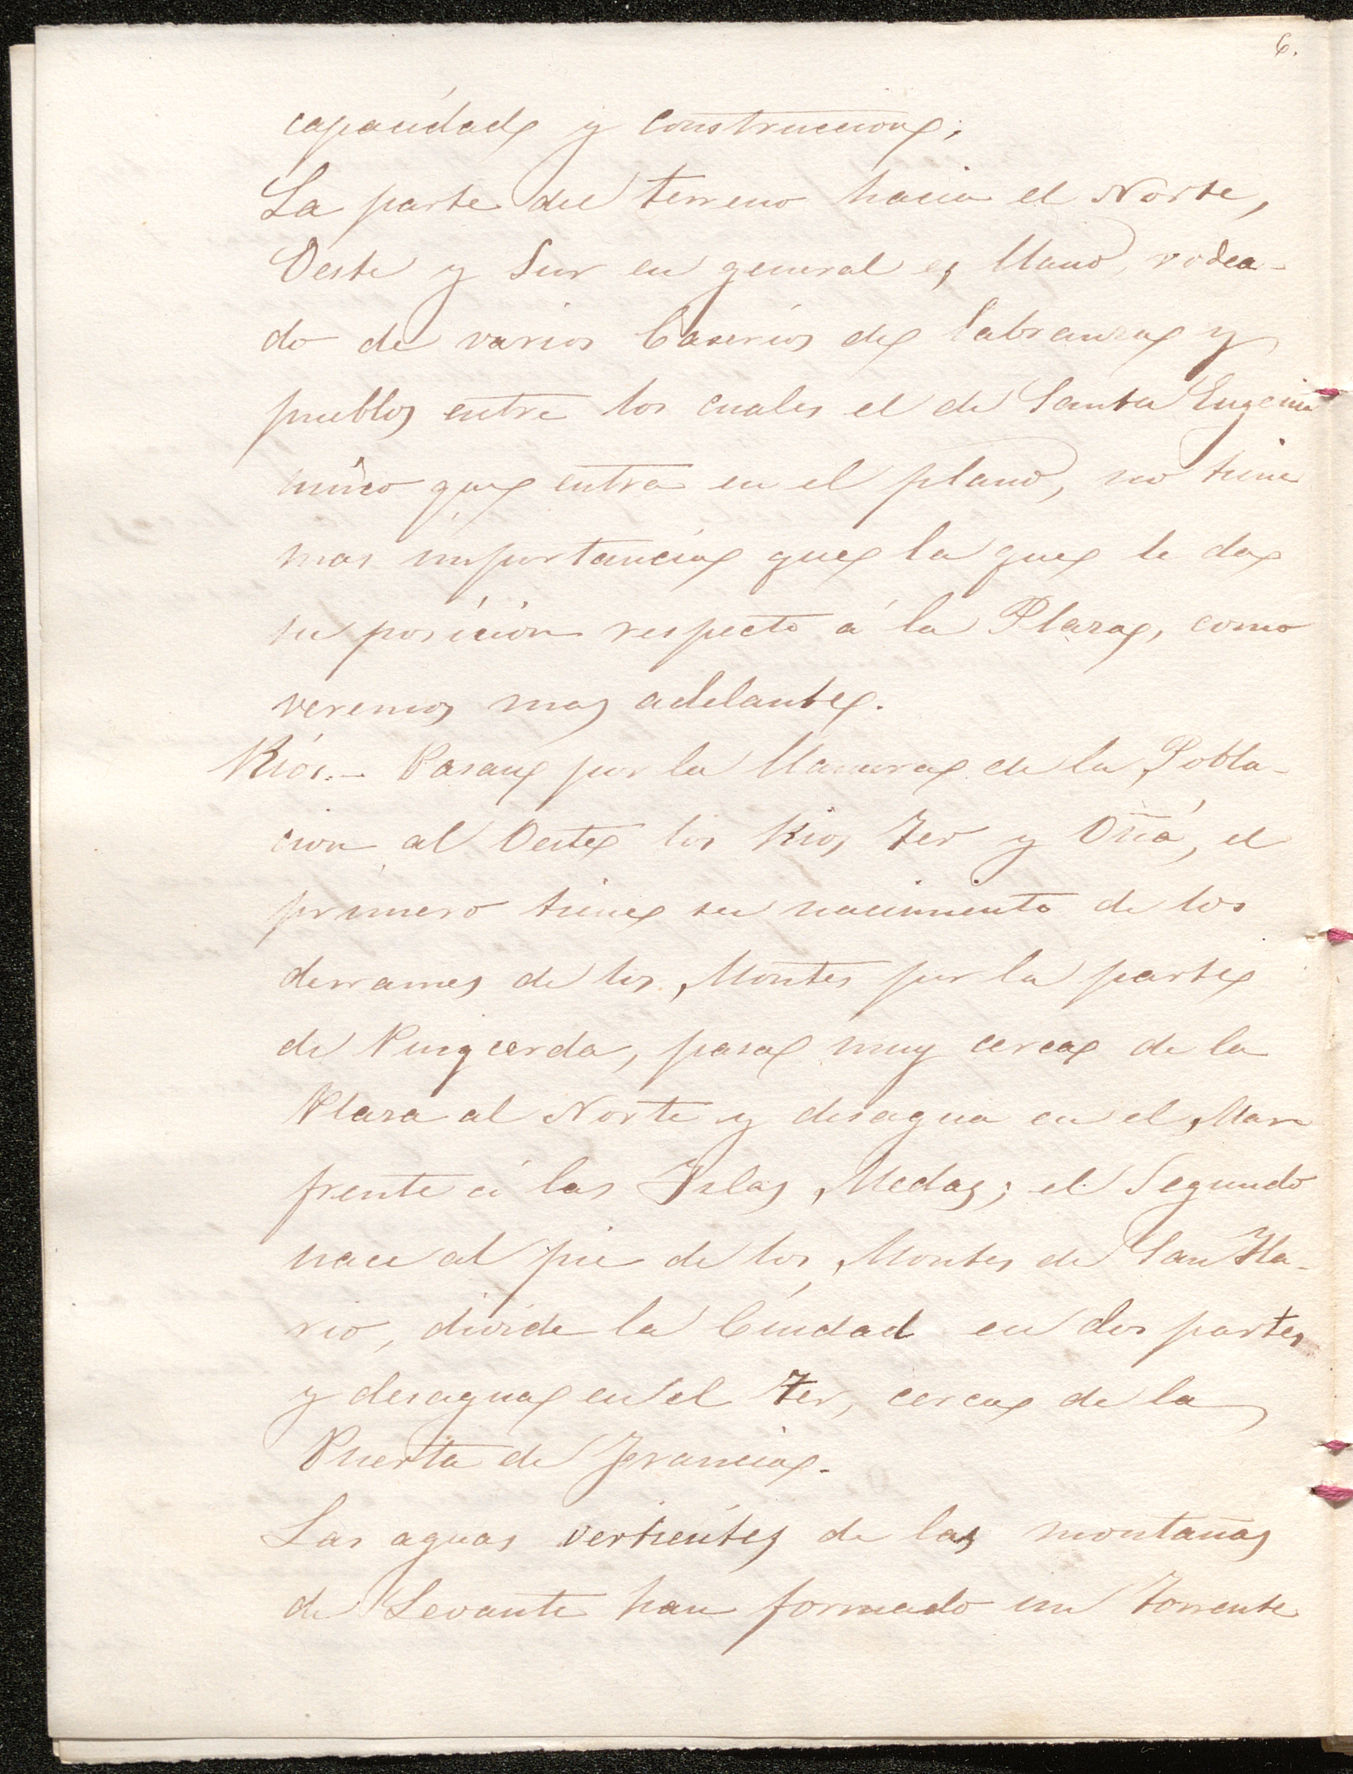 6.
capacidade y construccione;
La parte del terreno hacia el Norte,
Oeste y Sur en general es llano, rodea-
do de varios Caserios de labranza y
pueblos entre los cuales el de Santa Eugenia
unico que entra en el plano, no tiene
mas importancia que la que le da
su posicion respecto á la Plaza, como
veremos mas adelante.
Rios.- Pasan por la llanura de la Pobla-
cion al Oeste los Rios Ter y Oñá, el
primero tiene su nacimiento de los
derrames de los Montes por la parte
de Puigcerda, pasa muy cerca de la
Plaza al Norte y desagua en el Mar
frente á las Islas Medas; el Segundo
nace al pie de los Montes de San Ila-
rio, divide la Ciudad en dos partes
y desagua en el Ter, cerca de la
Puerta de Francia.
Las aguas vertientes de las montañas
de Levante han formado un Torrente